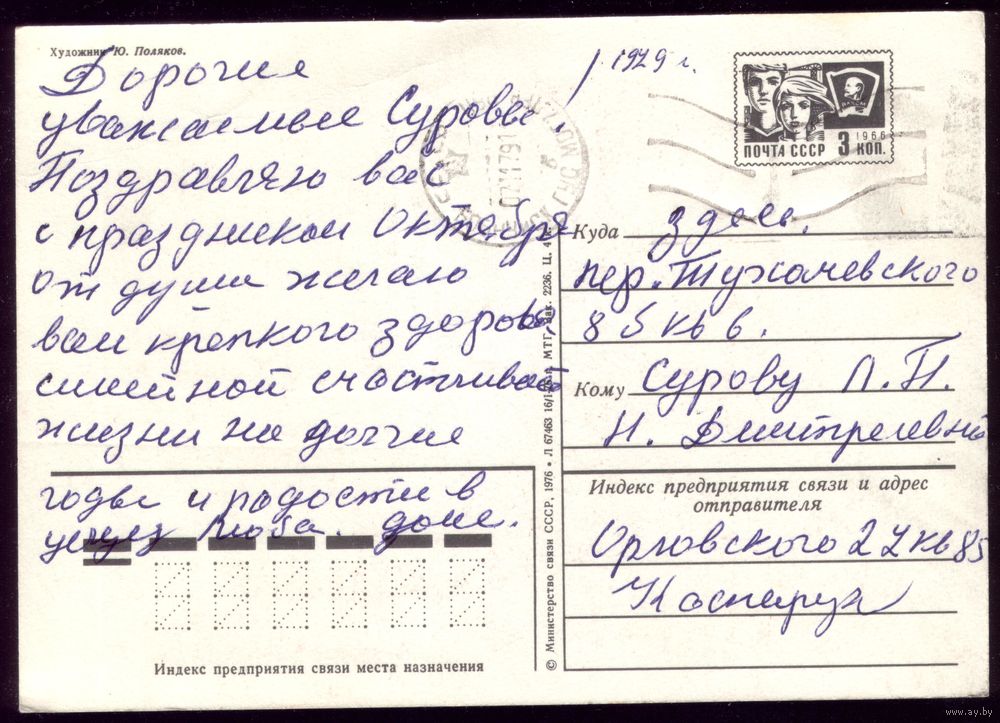 Художник Ю. Поляков.
Дорогия
уважаемые Суровы,
Поздравляю вас
с праздником Октября
от души желаю
вам крепкого здоровья
симейной счастливой
жизни на долгия
годы и радости в
доме.
1979 г.
1966
ПОЧТА СССР 3 КОП.
Куда здесь.
пер. Тухачевского
85 кв 6.
Кому Сурову Л. П.
Н. Дмитриевны
Индекс предприятия связи и адрес
отправителя
Орловского 24 кв 85
© Министерство связи СССР, 1976 • Л 67463 МТГ. Зак. 2236. Ц. 4
Индекс предприятия связи места назначения
www.ay.by